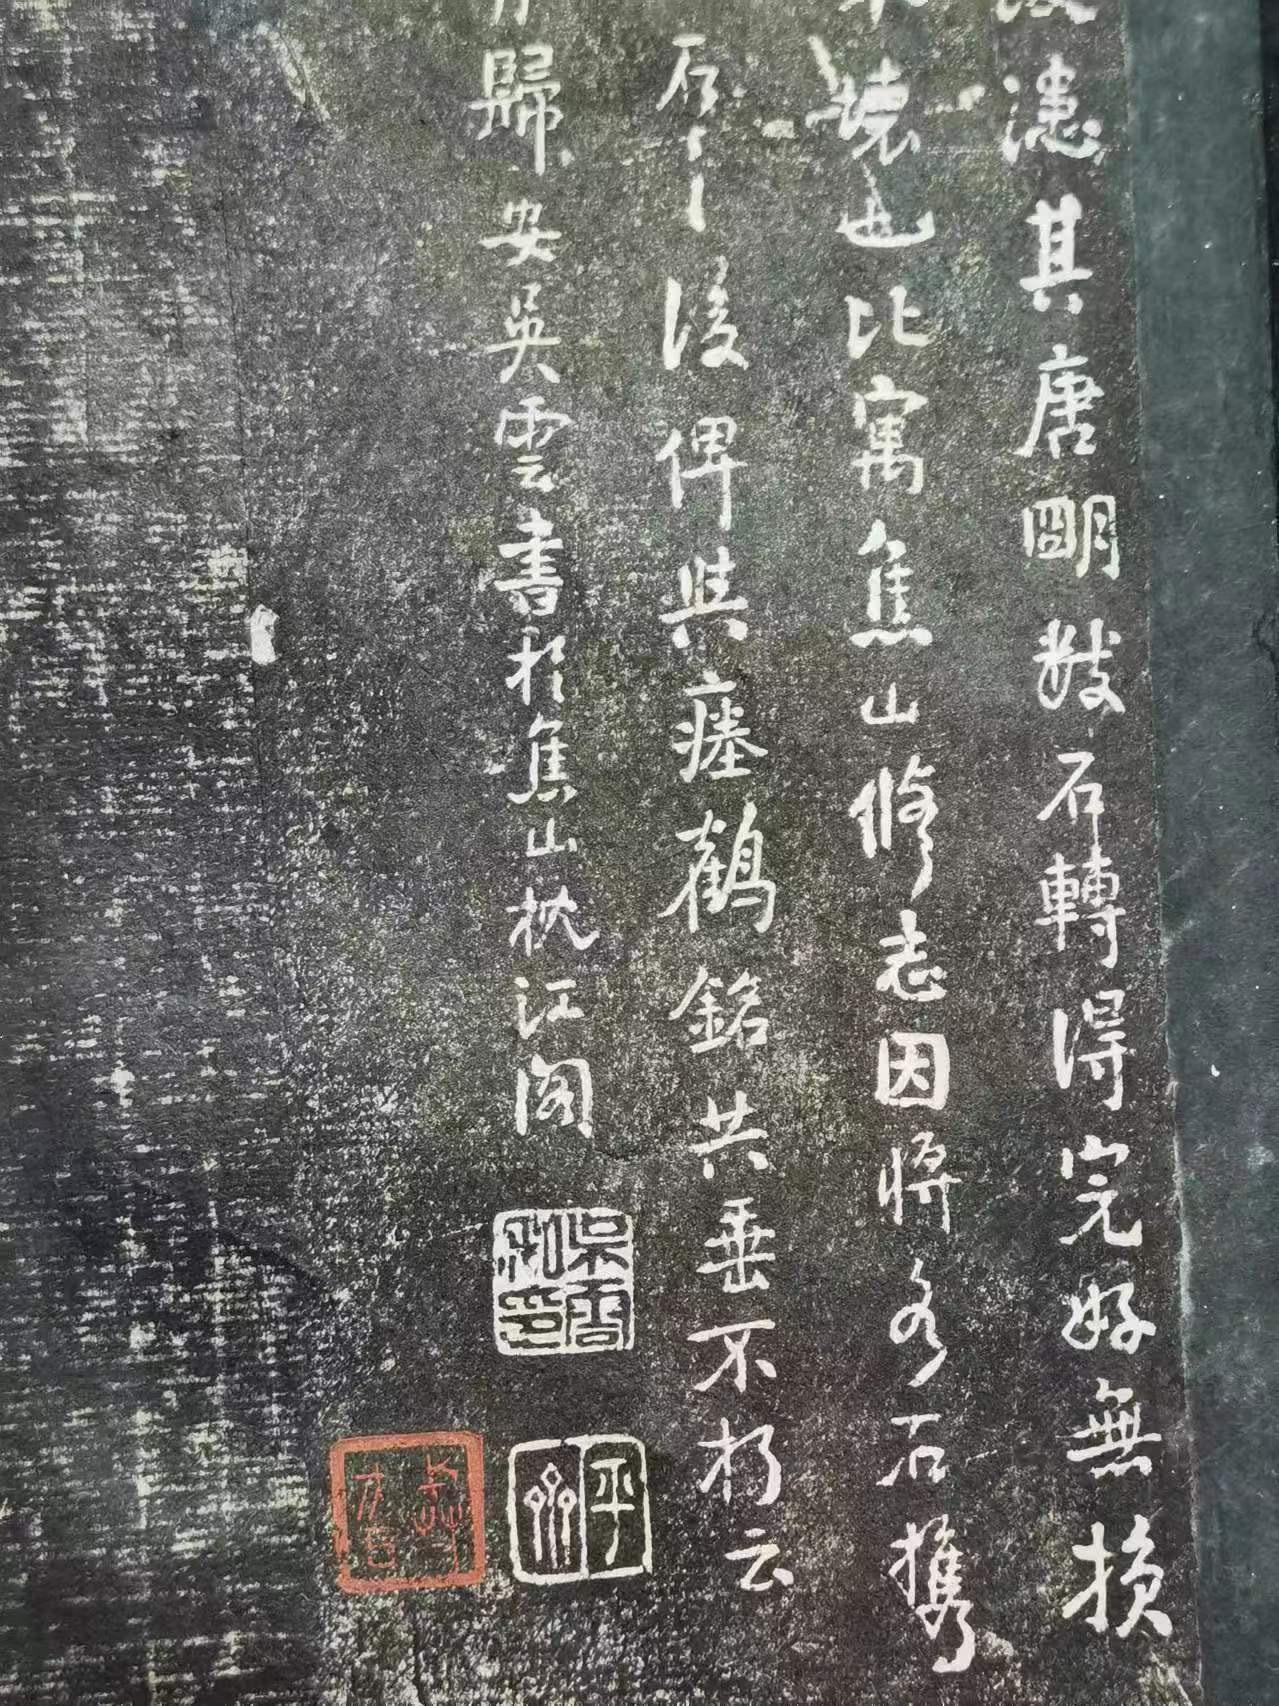 漶其唐朙數石轉得完好無損
壞也比寓焦山修志因將各石攜
後俾與瘞鶴銘共垂不朽云
歸安吳雲書於焦山枕江閣
吳雲私印
平齋